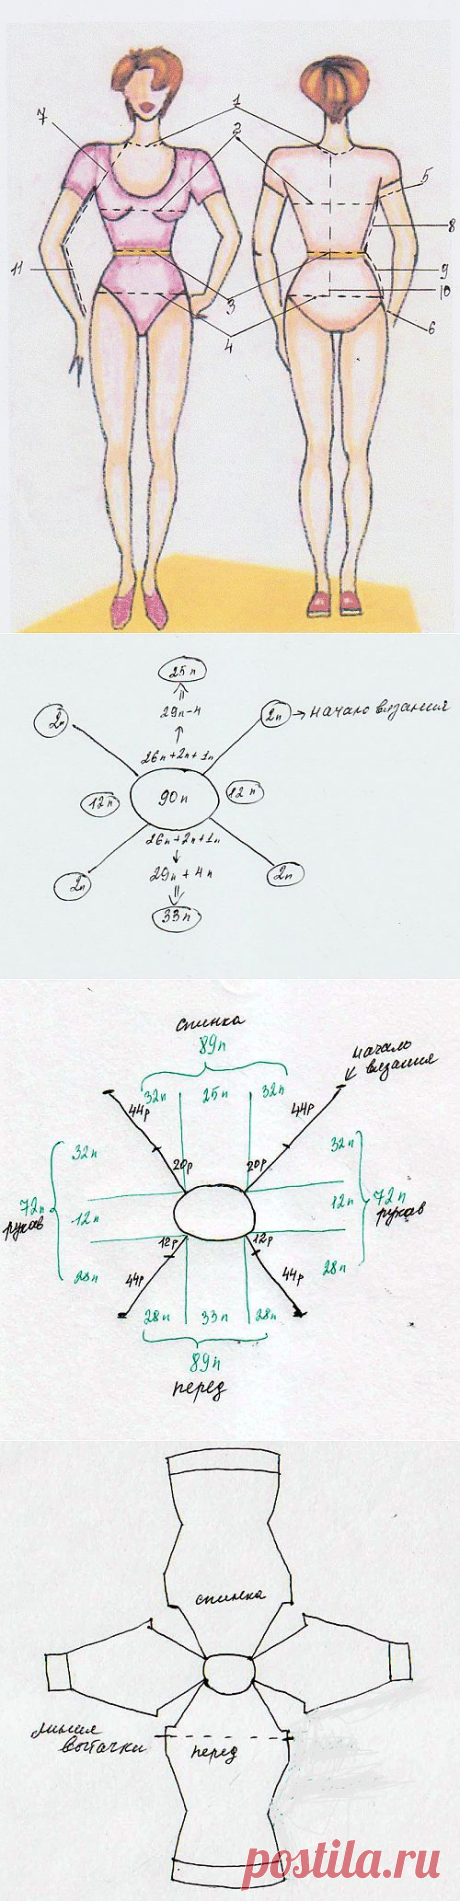 1
7
2
5
8
11
9
3
10
4
6
25п
29п-4
2п
2п → начало вязания
26п+2п+1п
12п
90п
12п
26п+2п+1п
29п+4п
2п
2п
33п
спинка
89п
начало
вязания
32п
25п
32п
44р
44р
32п
20р
20р
32п
72п
рукав
12п
12п
72п
рукав
12р
12р
28п
44р
44р
28п
28п
33п
28п
89п
перед
спинка
линия
вытачки
перед
postila.ru